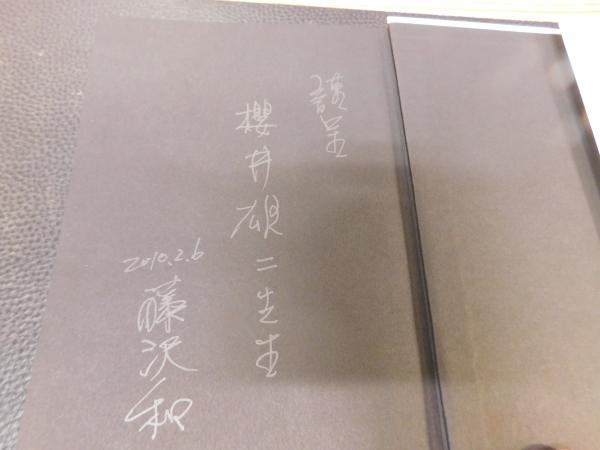 謹呈
櫻井碩二先生
2010.2.6
藤沢和